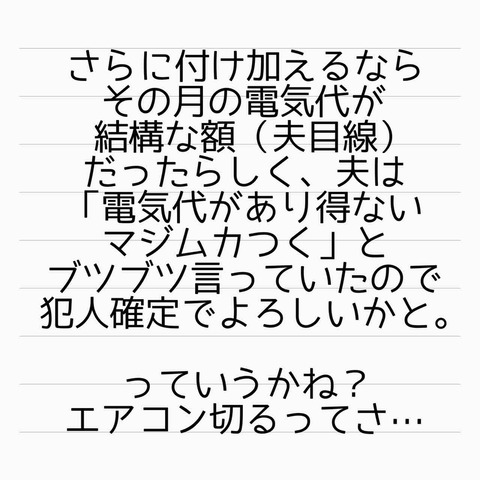 さらに付け加えるなら
その月の電気代が
結構な額（夫目線）
だったらしく、夫は
「電気代があり得ない
マジムカつく」と
ブツブツ言っていたので
犯人確定でよろしいかと。
っていうかね？
エアコン切るってさ…